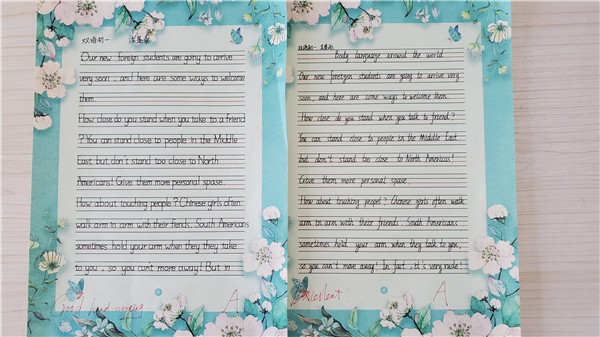 双语初一
Our new foreign students are going to arrive
very soon, and here are some ways to welcome
them.
How close do you stand when you take to a friend
? You can stand close to people in the Middle
East but don't stand too close to North
Americans! Give them more personal spase.
How about touching people? Chinese girls often
walk arm in arm with their fiends. South Americans
sometimes hold your arm when they they take
to you, so you cont more away! But in
Good handwriting
A
双语初一
Body language around the world
Our new foreign students are going to arrive very
soon, and here are some ways to welcome them.
How close do you stand when you talk to friend?
You can stand close to people in the Middle East
but don't stand too close to North Americas!
Give them more personal space.
How about touching peopel? Chinese girls often walk
arm in arm with their friends. South Americans
sometimes hold your arm when they talk to you,
so you can't move away! In fact, it's very rude!
A